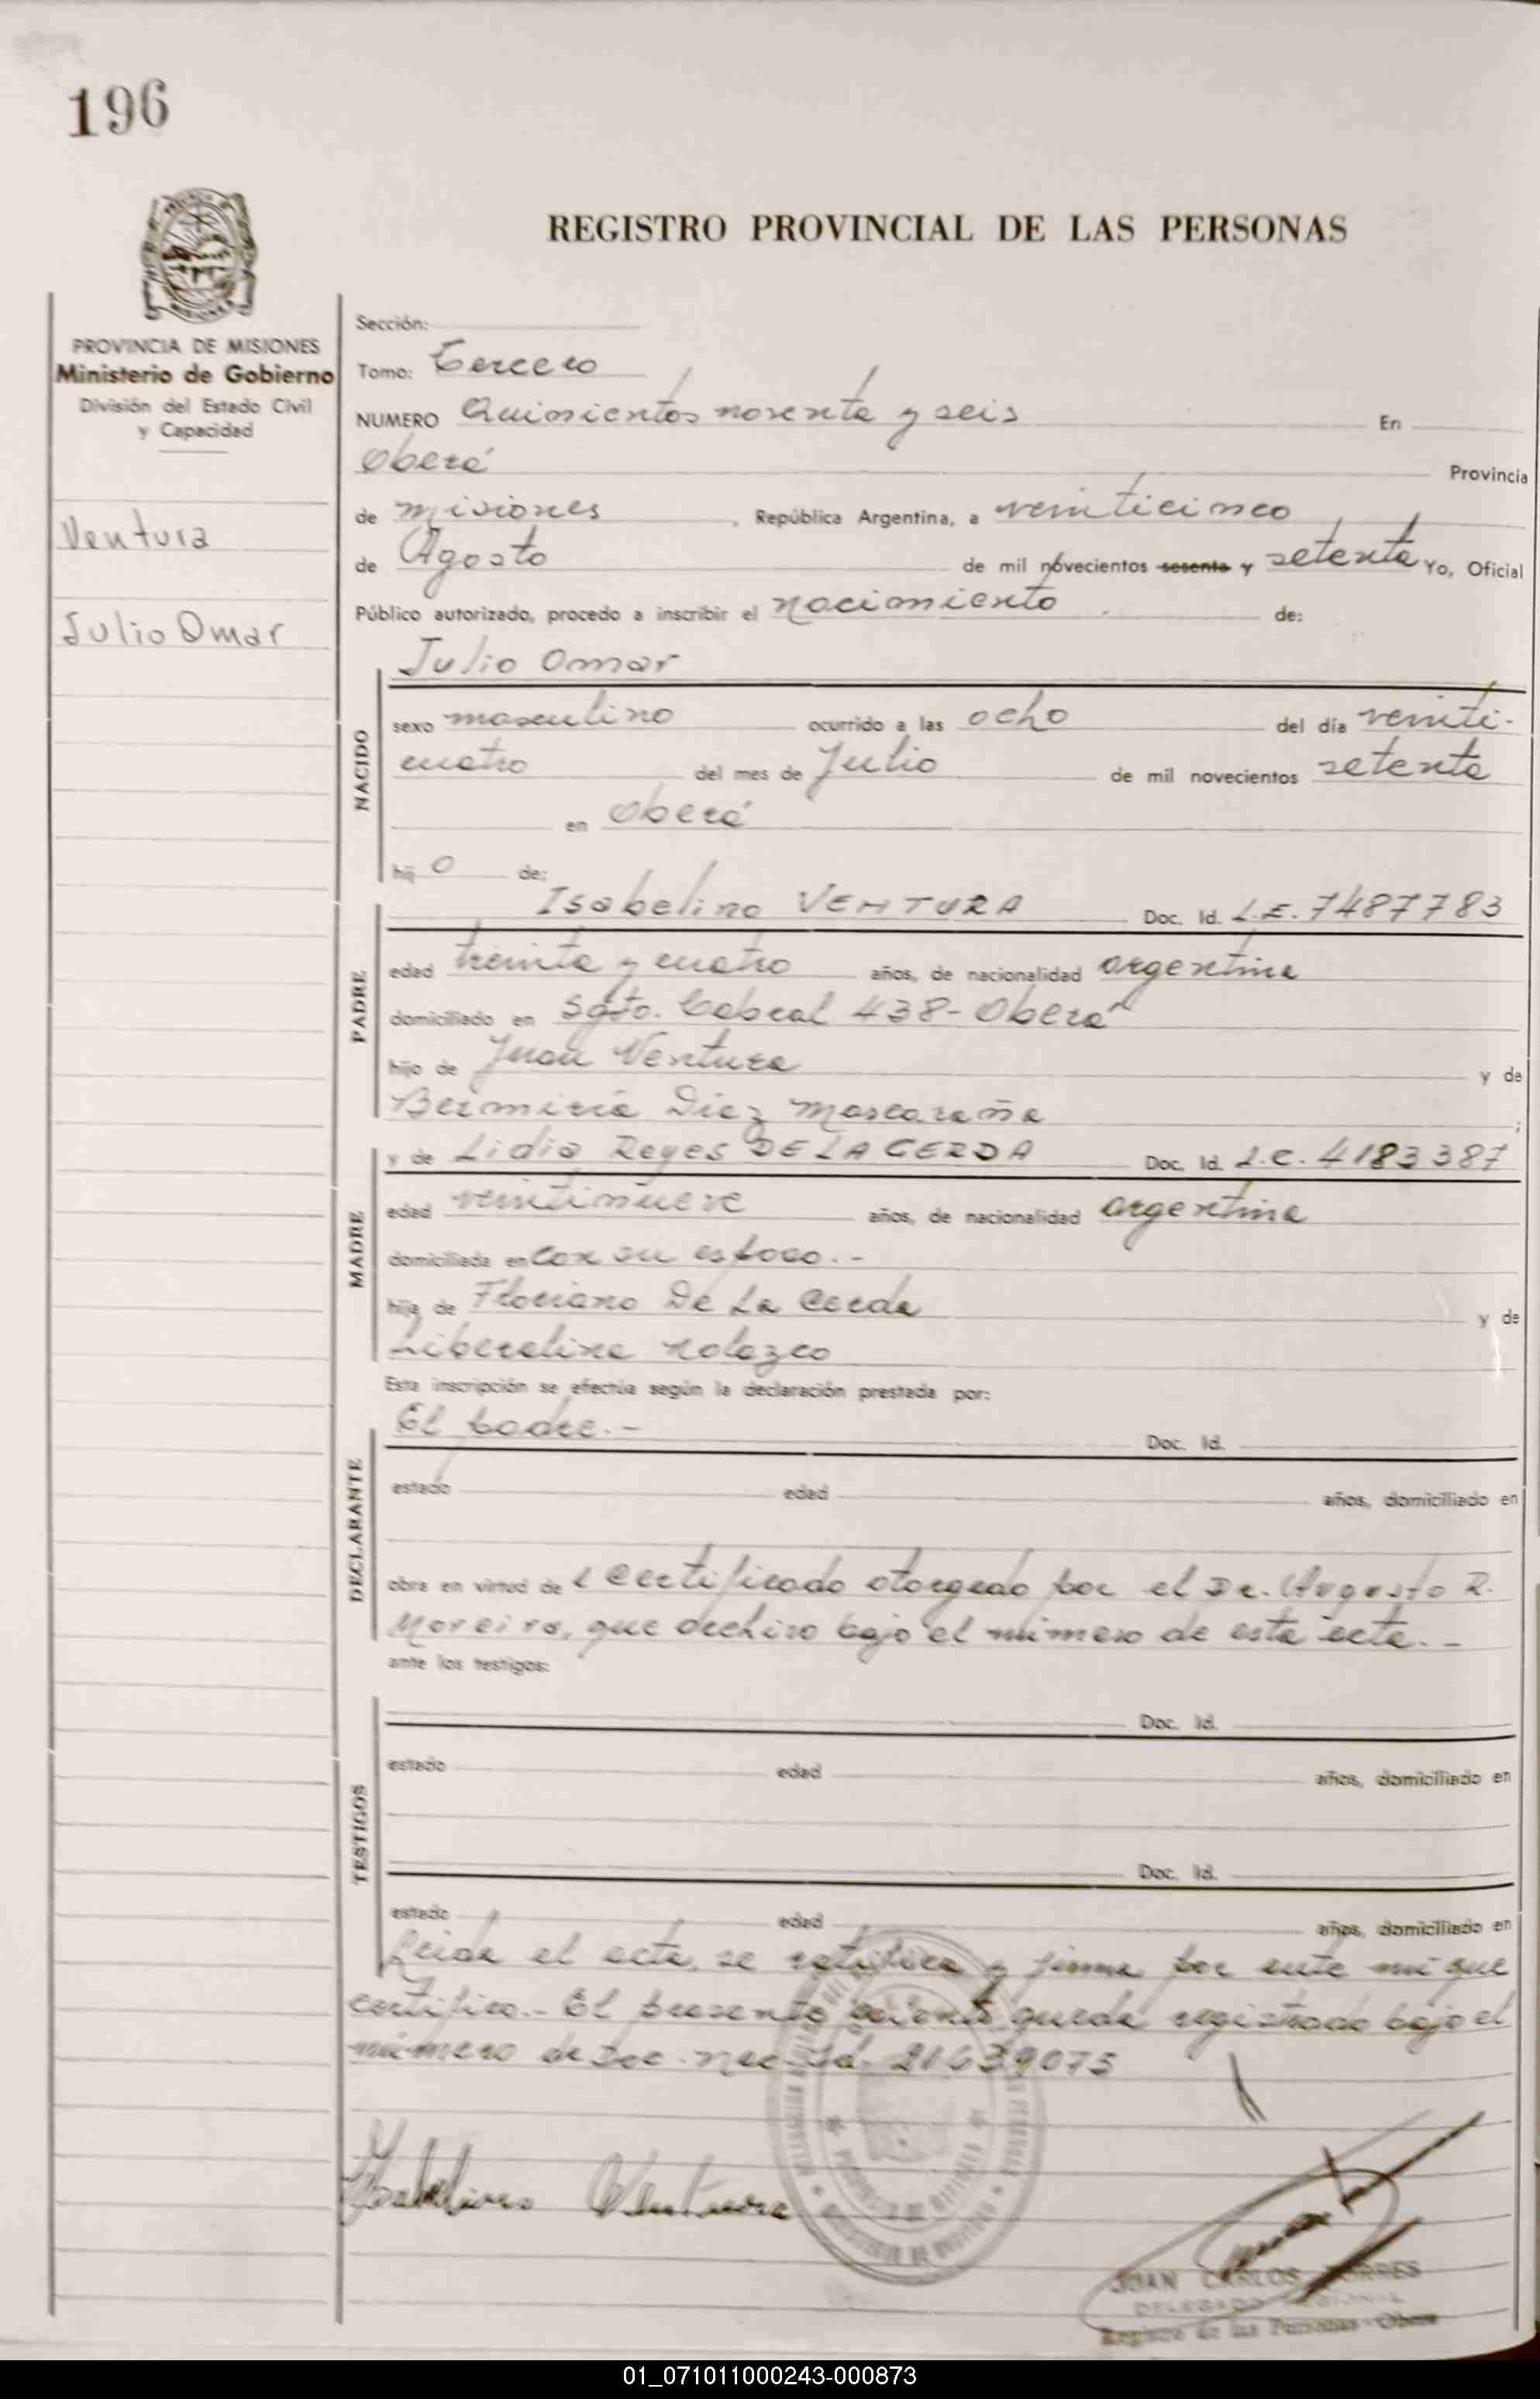 196
REGISTRO PROVINCIAL DE LAS PERSONAS
PROVINCIA DE MISIONES
Ministerio de Gobierno
División del Estado Civil
y Capacidad
Ventura
Julio Omar
Sección:
Tomo: Tercero
NUMERO Quinientos noventa y seis En
Oberá Provincia
de Misiones, República Argentina, a veinticinco
de Agosto de mil novecientos sesenta y setenta Yo, Oficial
Público autorizado, procedo a inscribir el nacimiento de:
Julio Omar
NACIDO
sexo masculino ocurrido a las ocho del día veinti-
cuatro del mes de Julio de mil novecientos setenta
en Oberá
hij o de:
Isabelino VENTURA Doc. Id. L.E. 7487783
PADRE
edad treinta y cuatro años, de nacionalidad argentina
domiciliado en Sgto. Cabral 438 - Oberá
hijo de Juan Ventura y de
Diez Mascaraña;
y de Lidia Reyes DE LA CERDA Doc. Id. L.C. 4183387
MADRE
edad veintinueve años, de nacionalidad argentina
domiciliada en con su esposo.-
hija de Floriano De La Cerda y de
Liberalina Nolazco
Esta inscripción se efectúa según la declaración prestada por:
El padre.- Doc. Id.
DECLARANTE
estado edad años, domiciliado en
obra en virtud de l certificado otorgado por el Dr. Augusto R.
Moreira, que archivo bajo el número de esta acta.-
ante los testigos:
Doc. Id.
TESTIGOS
estado edad años, domiciliado en
Doc. Id.
estado edad años, domiciliado en
Leída el acta, se ratifica y firma por ante mí que
certifico.- El presente queda registrado bajo el
número de Doc. Nac. Id. 21639075
Isabelino Ventura
JUAN CARLOS TORRES
DELEGADO REGIONAL
Registro de las Personas - Oberá
01_071011000243-000873